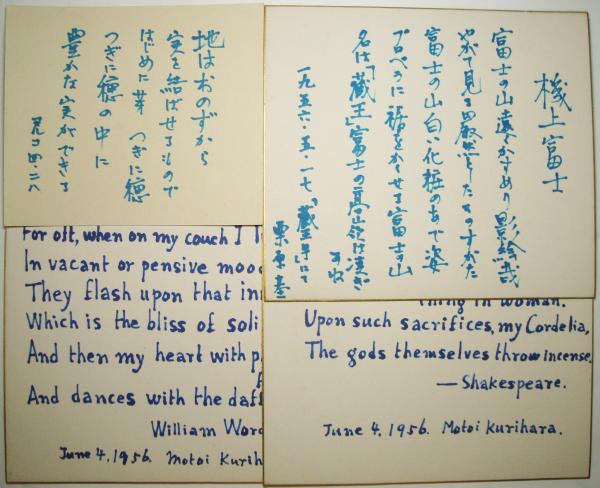 地はおのずから
実を結ばせるもので
はじめに芽 つぎに穂
つぎに穂の中に
豊かな実ができる
四・二八
機上富士
富士の山遠くかすめり影絵哉
やがて見る厳然としたそのすがた
富士の山白い化粧のあで姿
プロペラに裾をかくせる富士の山
名は「蔵王」富士の高嶺は凌ぎ
一九五六・五・一七 「蔵王号」にて
栗原基
For oft, when on my couch I
In vacant or pensive mood
They flash upon that in
Which is the bliss of soli
And then my heart with p
And dances with the daff
William Wor
June 4, 1956. Motoi Kurih
thing in woman.
Upon such sacrifices, my Cordelia,
The gods themselves throw incense.
— Shakespeare.
June 4, 1956. Motoi Kurihara.